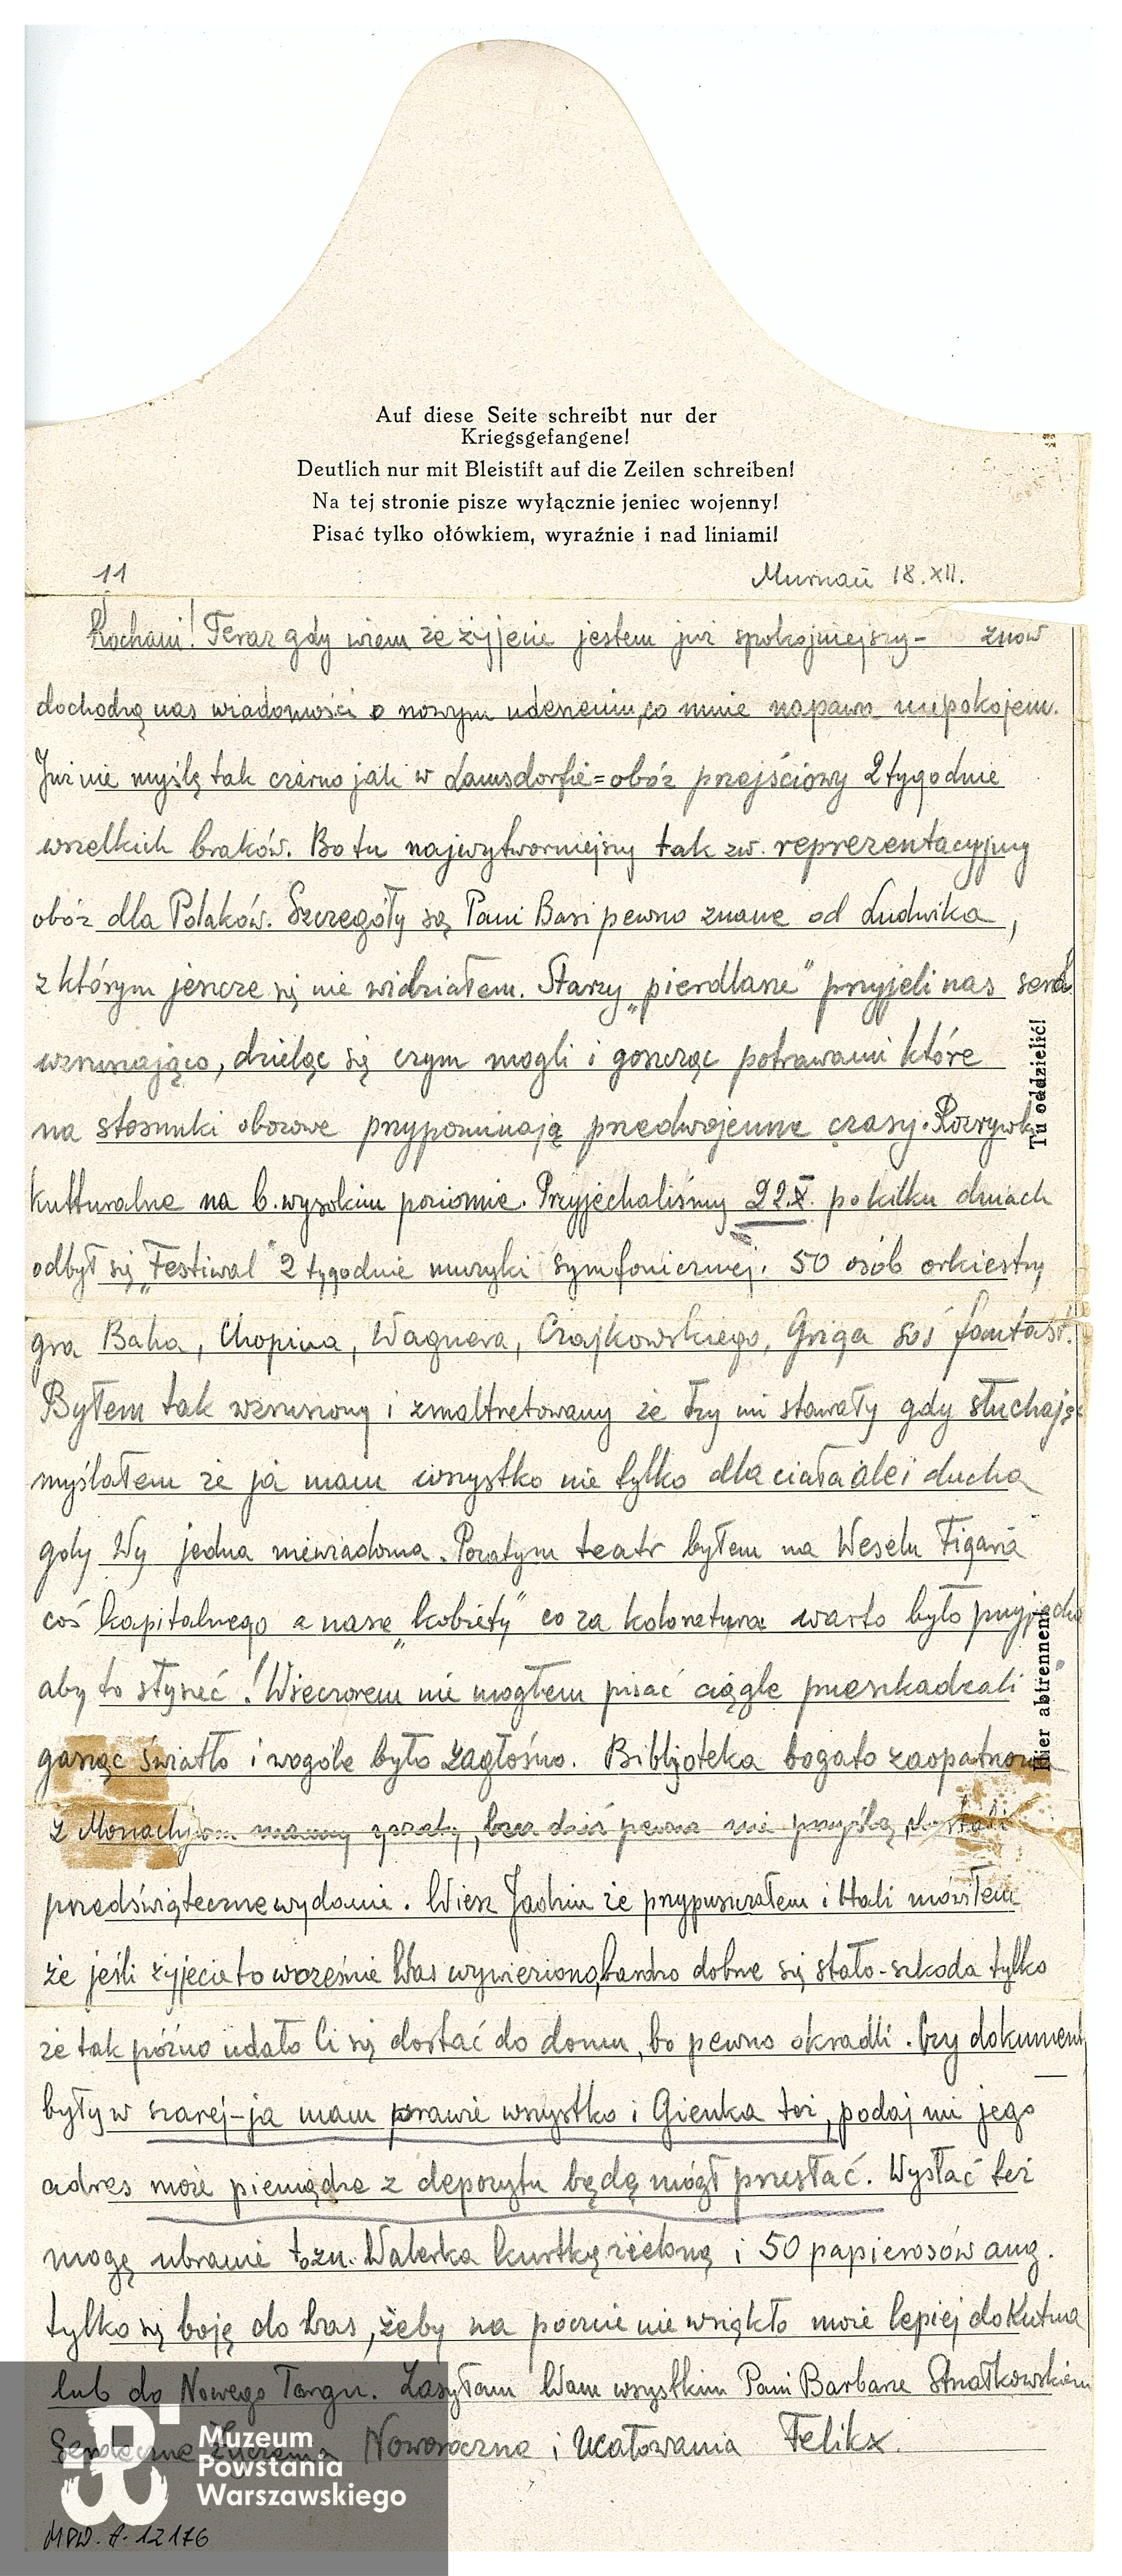 Auf diese Seite schreibt nur der
Kriegsgefangene!
Deutlich nur mit Bleistift auf die Zeilen schreiben!
Na tej stronie pisze wyłącznie jeniec wojenny!
Pisać tylko ołówkiem, wyraźnie i nad liniami!
11 Murnau 18.XII.
Kochani! Teraz gdy wiem że żyjecie jestem już spokojniejszy- znow
dochodzą nas wiadomości o nowym uderzeniu, co mnie napawa niepokojem.
Już nie myślę tak czarno jak w Lamsdorfie=obóz przejściowy 2 tygodnie
wszelkich braków. Bo tu najwytworniejszy tak zw. reprezentacyjny
obóz dla Polaków. Szczegóły są Pani Basi pewno znane od Ludwika,
z którym jeszcze się nie widziałem. Starzy „pierdlarze" przyjeli nas serd.
wzruszająco, dzieląc się czym mogli i goszcząc potrawami które
na stosunki obozowe przypominają przedwojenne czasy. Rozrywki
kulturalne na b. wysokim poziomie. Przyjechaliśmy 22.X. po kilku dniach
odbył się „Festiwal" 2 tygodnie muzyki symfonicznej. 50 osób orkiestry
gra Baha, Chopina, Wagnera, Czajkowskiego, Griga coś fantast.
Byłem tak wzruszony i zmaltretowany że łzy mi stawały gdy słuchając
myślałem że ja mam wszystko nie tylko dla ciała ale i ducha
gdy Wy jedna niewiadoma. Pozatym teatr byłem na Weselu Figara
coś kapitalnego a nasze „kobiety" co za koloratura warto było przyjechać
aby to słyszeć! Wieczorem nie mogłem pisać ciągle przeszkadzali
gasząc światło i wogóle było zagłośno. Bibljoteka bogato zaopatrzona
z Monachjum mamy gazety, lecz dziś pewno nie przyślą
przedświąteczne wydanie. Wiesz Jadziu że przypuszczałem i Hali mówiłem
że jeśli żyjecie to wcześnie Was wywieziono, bardzo dobrze się stało-szkoda tylko
że tak późno udało Ci się dostać do domu, bo pewno okradli. Czy dokumenty
były w szarej-ja mam prawie wszystko i Gienka też, podaj mi jego
adres może pieniądze z depozytu będę mógł przesłać. Wysłać też
mogę ubranie t.zn. Walerka kurtkę zieloną i 50 papierosów ang.
tylko się boję do Was, żeby na poczcie nie wsiąkło może lepiej do Kutna
lub do Nowego Targu. Zasyłam Wam wszystkim Pani Barbarze Strzałkowskiem
Serdeczne Życzenia Noworoczne i Ucałowania Felikx.
Tu oddzielić!
Hier abtrennen!
Muzeum
Powstania
Warszawskiego
MPW. A-12176